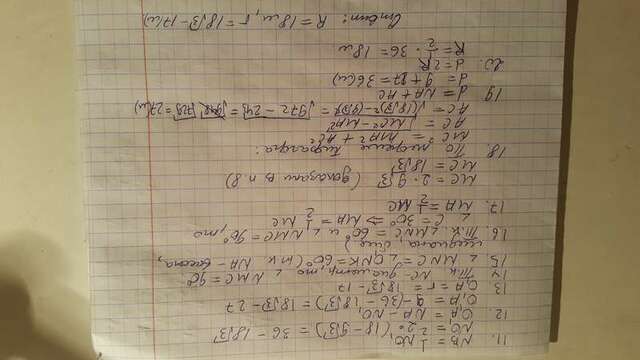 11. NB = 1/2 NO₁
NO₁ = 2 · (18 - 9√3) = 36 - 18√3
12. O₁A = NA - NO₁
O₁A = 9 - (36 - 18√3) = 18√3 - 27
13. O₁A = r = 18√3 - 17
14. Т.к. NC - диаметр, то ∠ NMC = 90°
15. ∠ MNC = ∠ O₁NK = 60° (т.к. NA - высота,
медиана, бисс.)
16. Т.к. ∠MNC = 60° и ∠ NMC = 90°, то
∠ C = 30° ⇒ MA = 1/2 MC
17. MA = 1/2 MC
MC = 2 · 9√3 (доказали в п. 8)
MC = 18√3
18. По теореме Пифагора:
MC² = MA² + AC²
AC = √(MC² - MA²)
AC = √((18√3)² - (9√3)²) = √(972 - 243) = √729 = 27(м)
19 d = NA + AC
d = 9 + 27 = 36(м)
20. d = 2R
R = 1/2 · 36 = 18 м.
Ответ: R = 18 м, r = 18√3 - 17(м)